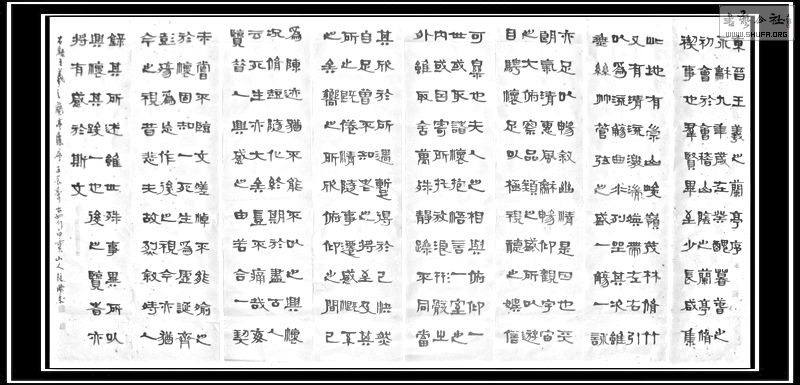 東晉王羲之蘭亭序
永和九年歲在癸丑暮春之
初會於會稽山陰之蘭亭脩
禊事也羣賢畢至少長咸集
此地有崇山峻嶺茂林脩竹
又有清流激湍暎帶左右引
以為流觴曲水列坐其次雖
無絲竹管弦之盛一觴一詠
亦足以暢敘幽情是日也天
朗氣清惠風和暢仰觀宇宙
之大俯察品類之盛所以遊
目騁懷足以極視聽之娛信
可樂也夫人之相與俯仰一
世或取諸懷抱悟言一室之
內或因寄所託放浪形骸之
外雖取舍萬殊靜躁不同當
其欣於所遇暫得於己快然
自足曾不知老之將至及其
所之既倦情隨事遷感慨係
之矣嚮之所欣俯仰之間已
為陳迹猶不能不以之興懷
況脩短隨化終期於盡古人
云死生亦大矣豈不痛哉每
覽昔人興感之由若合一契
未嘗不臨文嗟悼不能喻之
於懷固知一死生為虛誕齊
彭殤為妄作後之視今亦猶
今之視昔悲夫故列敘時人
錄其所述雖世殊事異所以
興懷其致一也後之覽者亦
將有感於斯文
王羲之蘭亭
WWW.SHUFA.ORG